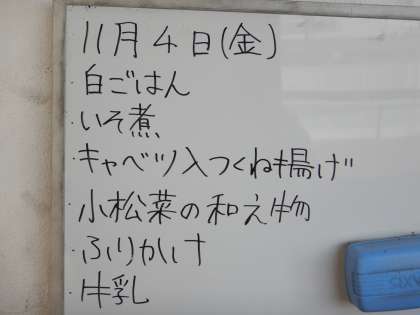 11月4日(金)
・白ごはん
・いそ煮
・キャベツ入つくね揚げ
・小松菜の和え物
・ふりかけ
・牛乳